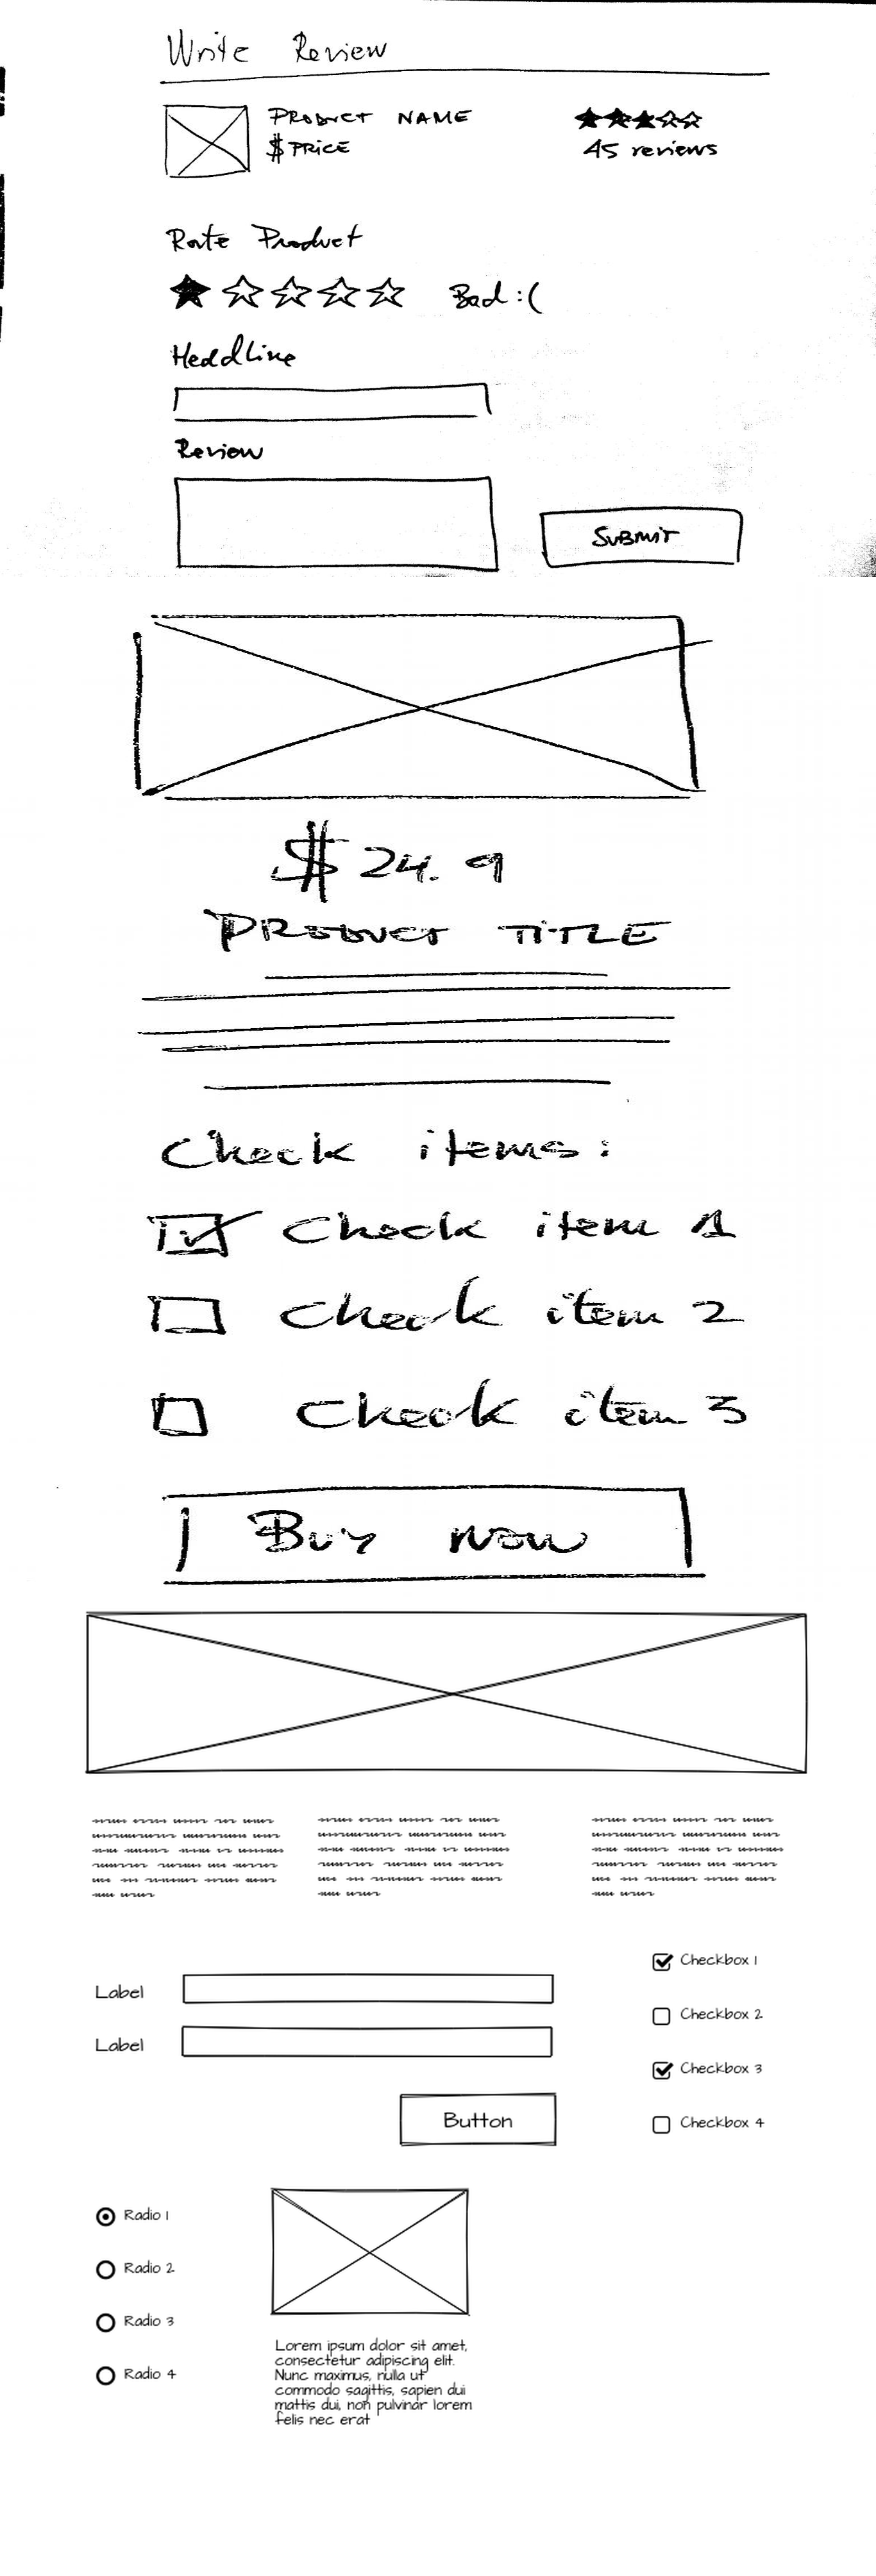 Write Review
PRODUCT NAME
$ PRICE
45 reviews
Rate Product
Bad :(
Headline
Review
SUBMIT
$ 24.9
PRODUCT TITLE
Check items:
Check item 1
Check item 2
Check item 3
Buy now
Label
Label
Button
Checkbox 1
Checkbox 2
Checkbox 3
Checkbox 4
Radio 1
Radio 2
Radio 3
Radio 4
Lorem ipsum dolor sit amet,
consectetur adipiscing elit.
Nunc maximus, nulla ut
commodo sagittis, sapien dui
mattis dui, non pulvinar lorem
felis nec erat